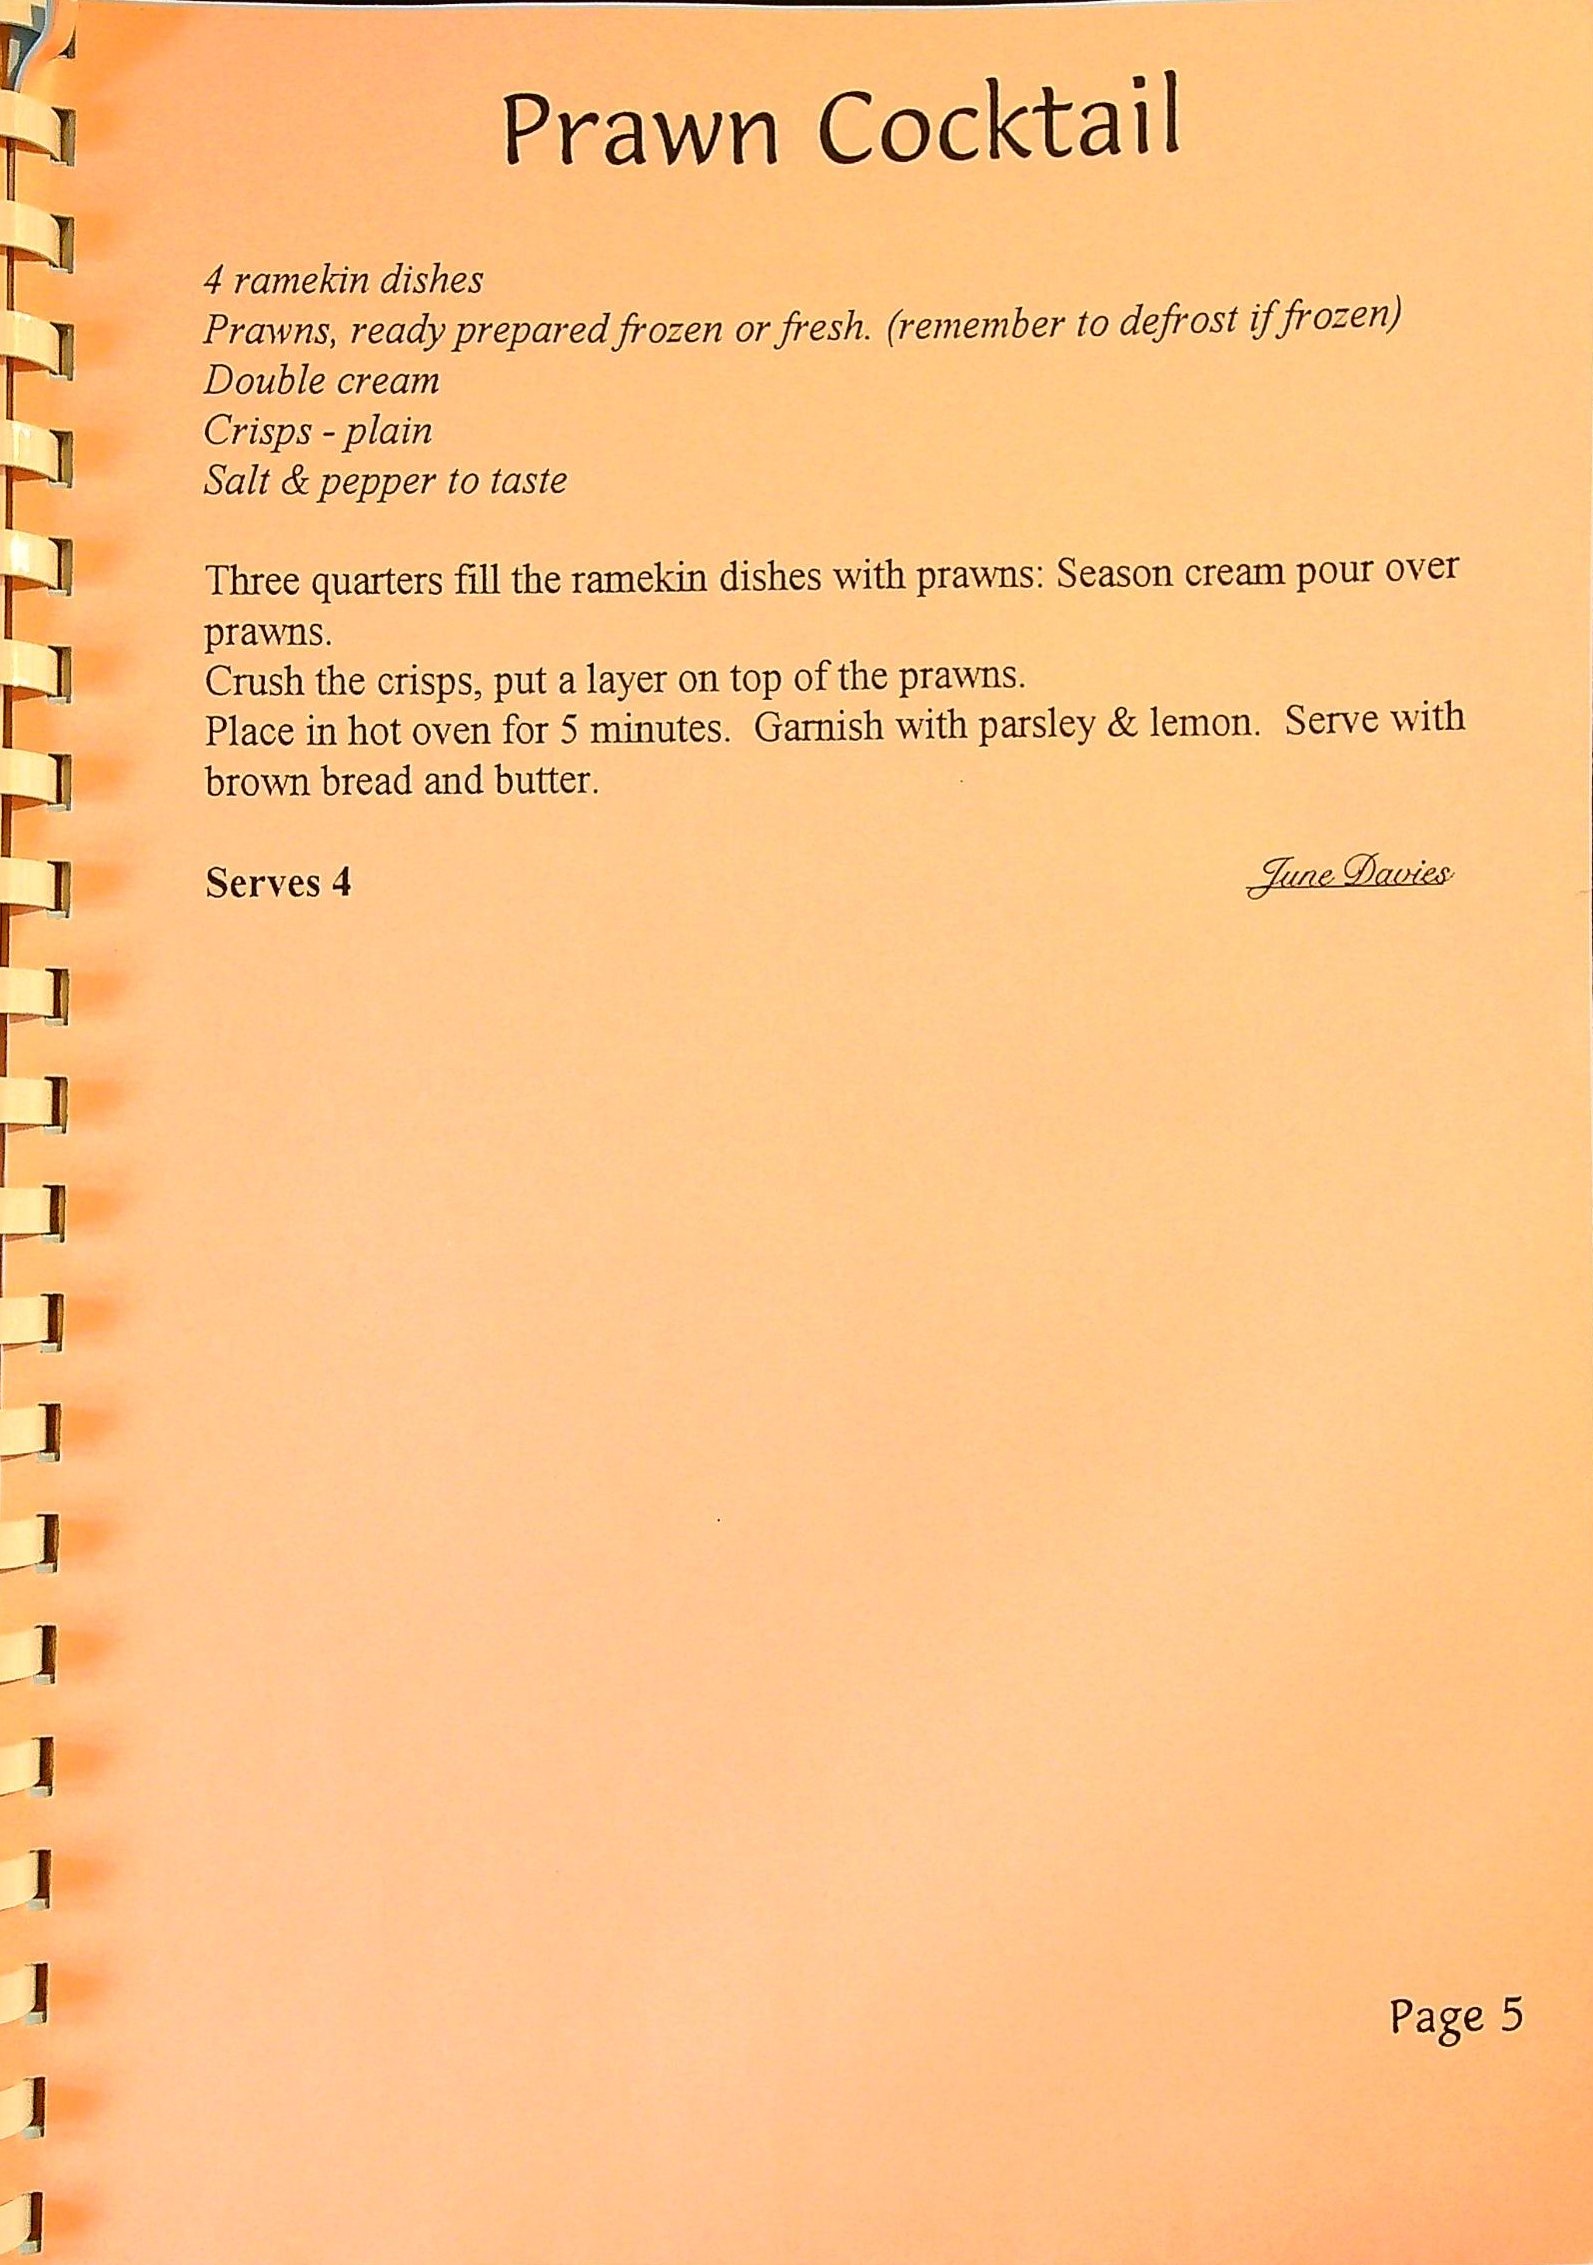 Prawn Cocktail
4 ramekin dishes
Prawns, ready prepared frozen or fresh. (remember to defrost if frozen)
Double cream
Crisps - plain
Salt & pepper to taste
Three quarters fill the ramekin dishes with prawns: Season cream pour over
prawns.
Crush the crisps, put a layer on top of the prawns.
Place in hot oven for 5 minutes.  Garnish with parsley & lemon.  Serve with
brown bread and butter.
Serves 4
June Davies
Page 5